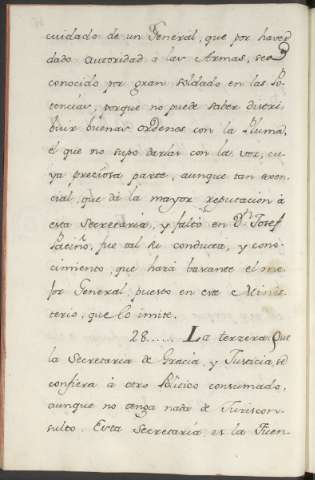 cuidado de un General, que por haver
dado autoridad á las Armas, sea
conocido por gran soldado en las Po-
tencias, porque no puede saber distri-
buir buenas ordenes con la Pluma,
el que no supo darlas con la voz, cu-
ya preciosa parte, aunque tan esen-
cial, que dá la mayor reputacion á
esta Secretaria, y faltó en Dn. Josef
Patiño, fue tal su conducta, y cono-
cimiento, que hará bastante el me-
jor General, puesto en este Minis-
terio, que lo imite.
28...... La terzera: Que
la Secretaria de Gracia, y Justicia, se
confiera á otro Politico consumado,
aunque no tenga nada de Jariscon-
sulto. Esta Secretaria, es la Fuen-